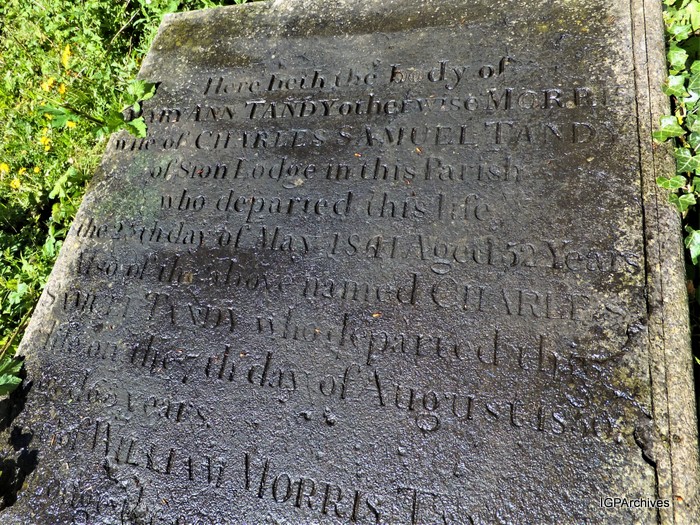 Here lieth the body of
MARY ANN TANDY otherwise MORRIS
wife of CHARLES SAMUEL TANDY
of Sion Lodge in this Parish
who departed this life
the 25th day of May 1841 Aged 52 Years
Also of the above named CHARLES
SAMUEL TANDY who departed this
life on the 7th day of August
aged years
of WILLIAM MORRIS
IGPArchives